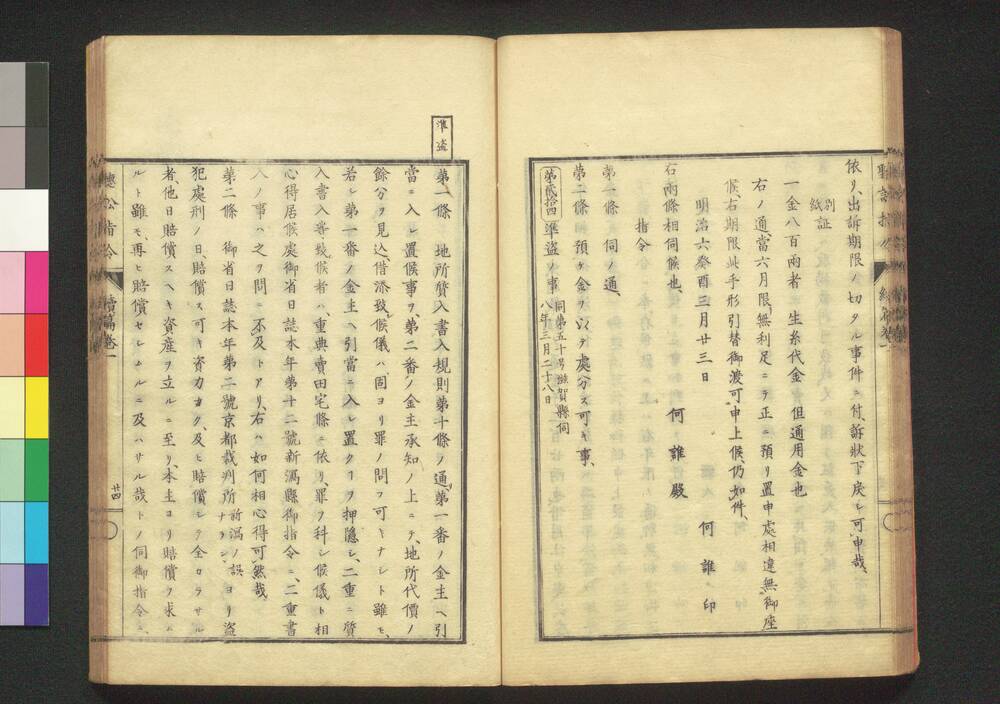 依リ、出訴期限ノ切タル事件ニ付、訴狀下戻シ可申哉、
別
紙
証
一金八百兩者 生糸代金 但通用金也
右ノ通、當六月限無利足ニテ正ニ預リ置申處相違無御座
候右期限此手形引替御渡可申上候、仍如件、
明治六癸酉三月廿三日 何誰印
何誰殿
右兩條相伺候也、
指令
第一條 伺ノ通、
第二條 預ケ金ヲ以テ處分ス可キ事、
第貳拾四 準盗ノ事 同第五十号滋賀縣伺
八年三月二十八日
準盗
第一條 地所質入書入規則第十條ノ通、第一番ノ金主ヘ引
當ニ入レ置候事ヲ、第二番ノ金主承知ノ上ニテ、地所代價ノ
餘分ヲ見込、借添致候儀ハ、固ヨリ罪ノ問フ可キナシト雖モ、
若シ第一番ノ金主ヘ引當ニ入レ置クヿヲ押隱シ、二重ニ質
入書入等致候者ハ、重典賣田宅條ニ依リ、罪ヲ科シ候儀ト相
心得居候處、御省日誌本年第十二號新潟縣御指令ニ、二重書
入ノ事ハ之ヲ問ニ不及トアリ、右ハ如何相心得可然哉、
第二條 御省日誌本年第二號京都裁判所 新潟ノ誤ナラン ヨリ盗
犯處刑ノ日、賠償ス可キ資力ナク、及ヒ賠償シテ全カラサル
者、他日賠償スヘキ資産ヲ立ルニ至リ、本主ヨリ賠償ヲ求ム
ルト雖モ、再ヒ賠償セシムルニ及ハサル哉トノ伺御指令ニ、
續編卷一
廿四